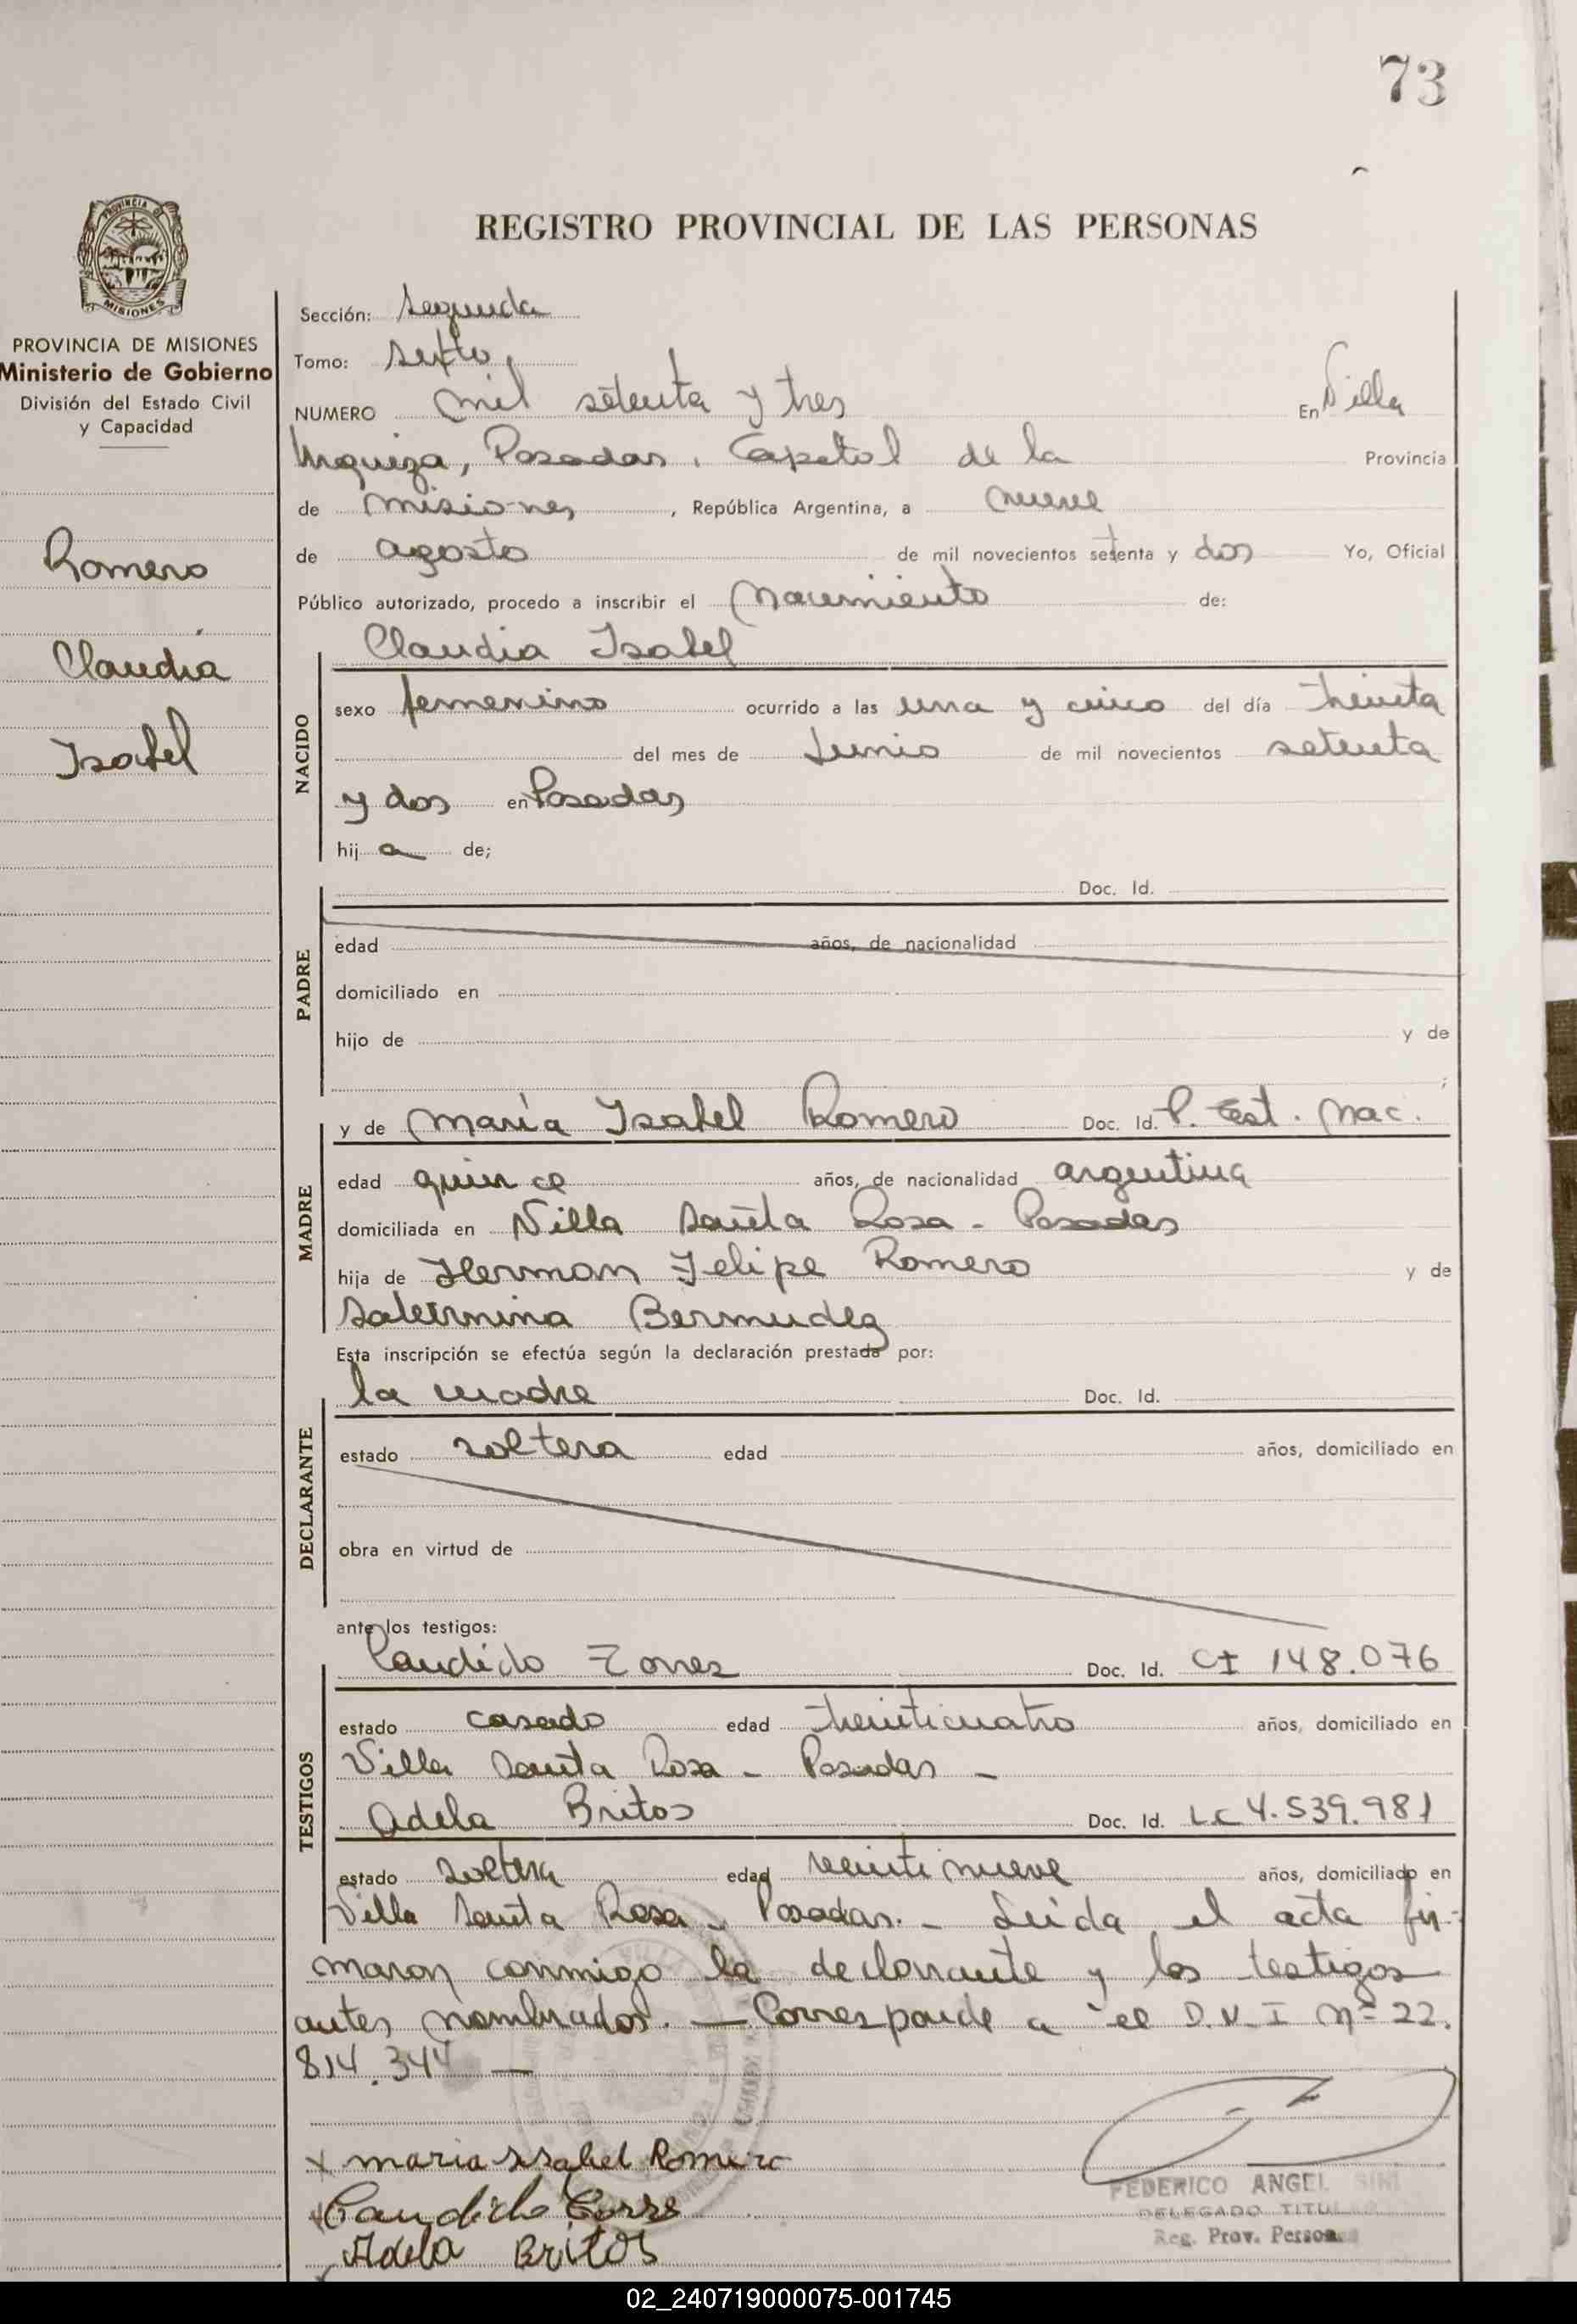 73
REGISTRO PROVINCIAL DE LAS PERSONAS
PROVINCIA DE
MISIONES
PROVINCIA DE MISIONES
Ministerio de Gobierno
División del Estado Civil
y Capacidad
Romero
Claudia
Isabel
Sección: Segunda
Tomo: Sexto
NUMERO mil setenta y tres En Villa
Urquiza, Posadas, Capital de la Provincia
de Misiones, República Argentina, a nueve
de agosto de mil novecientos setenta y dos Yo, Oficial
Público autorizado, procedo a inscribir el Nacimiento de:
Claudia Isabel
NACIDO
sexo femenino ocurrido a las una y cinco del día treinta
del mes de Junio de mil novecientos setenta
y dos en Posadas
hij a de;
Doc. Id.
PADRE
edad años, de nacionalidad
domiciliado en
hijo de y de
;
y de María Isabel Romero Doc. Id. P. Test. Nac.
MADRE
edad quince años, de nacionalidad argentina
domiciliada en Villa Santa Rosa - Posadas
hija de Herman Felipe Romero y de
Saturnina Bermudez
Esta inscripción se efectúa según la declaración prestada por:
la madre Doc. Id.
DECLARANTE
estado soltera edad años, domiciliado en
obra en virtud de
ante los testigos:
Candido Torres Doc. Id. CI 148.076
TESTIGOS
estado casado edad treinticuatro años, domiciliado en
Villa Santa Rosa - Posadas -
Adela Britos Doc. Id. LC 4.539.981
estado soltera edad veintinueve años, domiciliado en
Villa Santa Rosa - Posadas. - Leída el acta fir-
maron conmigo la declarante y los testigos
antes nombrados. — Corresponde a el D.N.I Nº 22.
814.344 —
x maria Isabel Romero
x Candido Torre
Adela Britos
FEDERICO ANGEL SINI
DELEGADO TITULAR
Reg. Prov. Personas
02_240719000075-001745